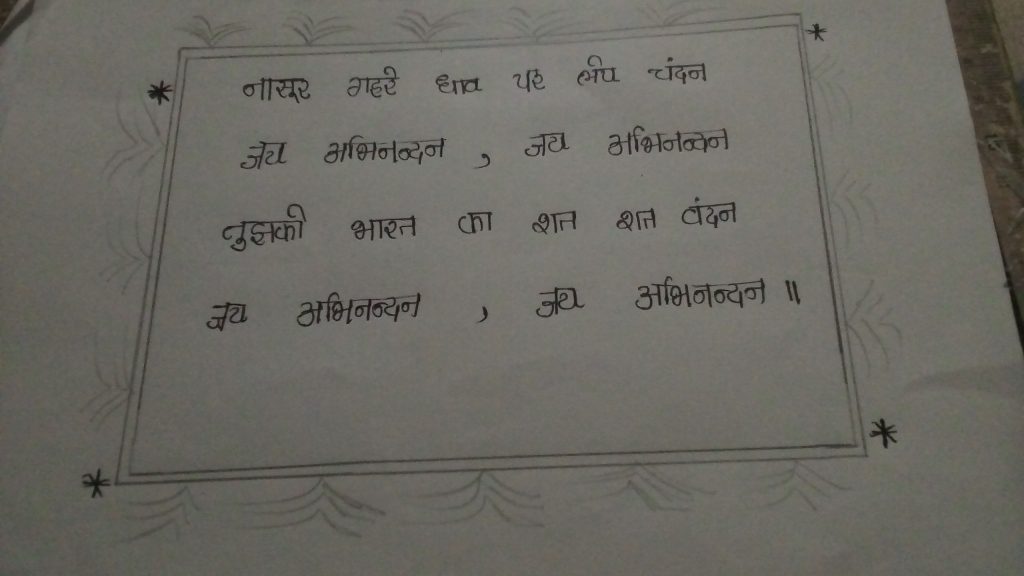 नासूर गहरे घाव पर लेप चंदन
जय अभिनन्दन , जय अभिनन्दन
तुझको भारत का शत शत वंदन
जय अभिनन्दन , जय अभिनन्दन ॥